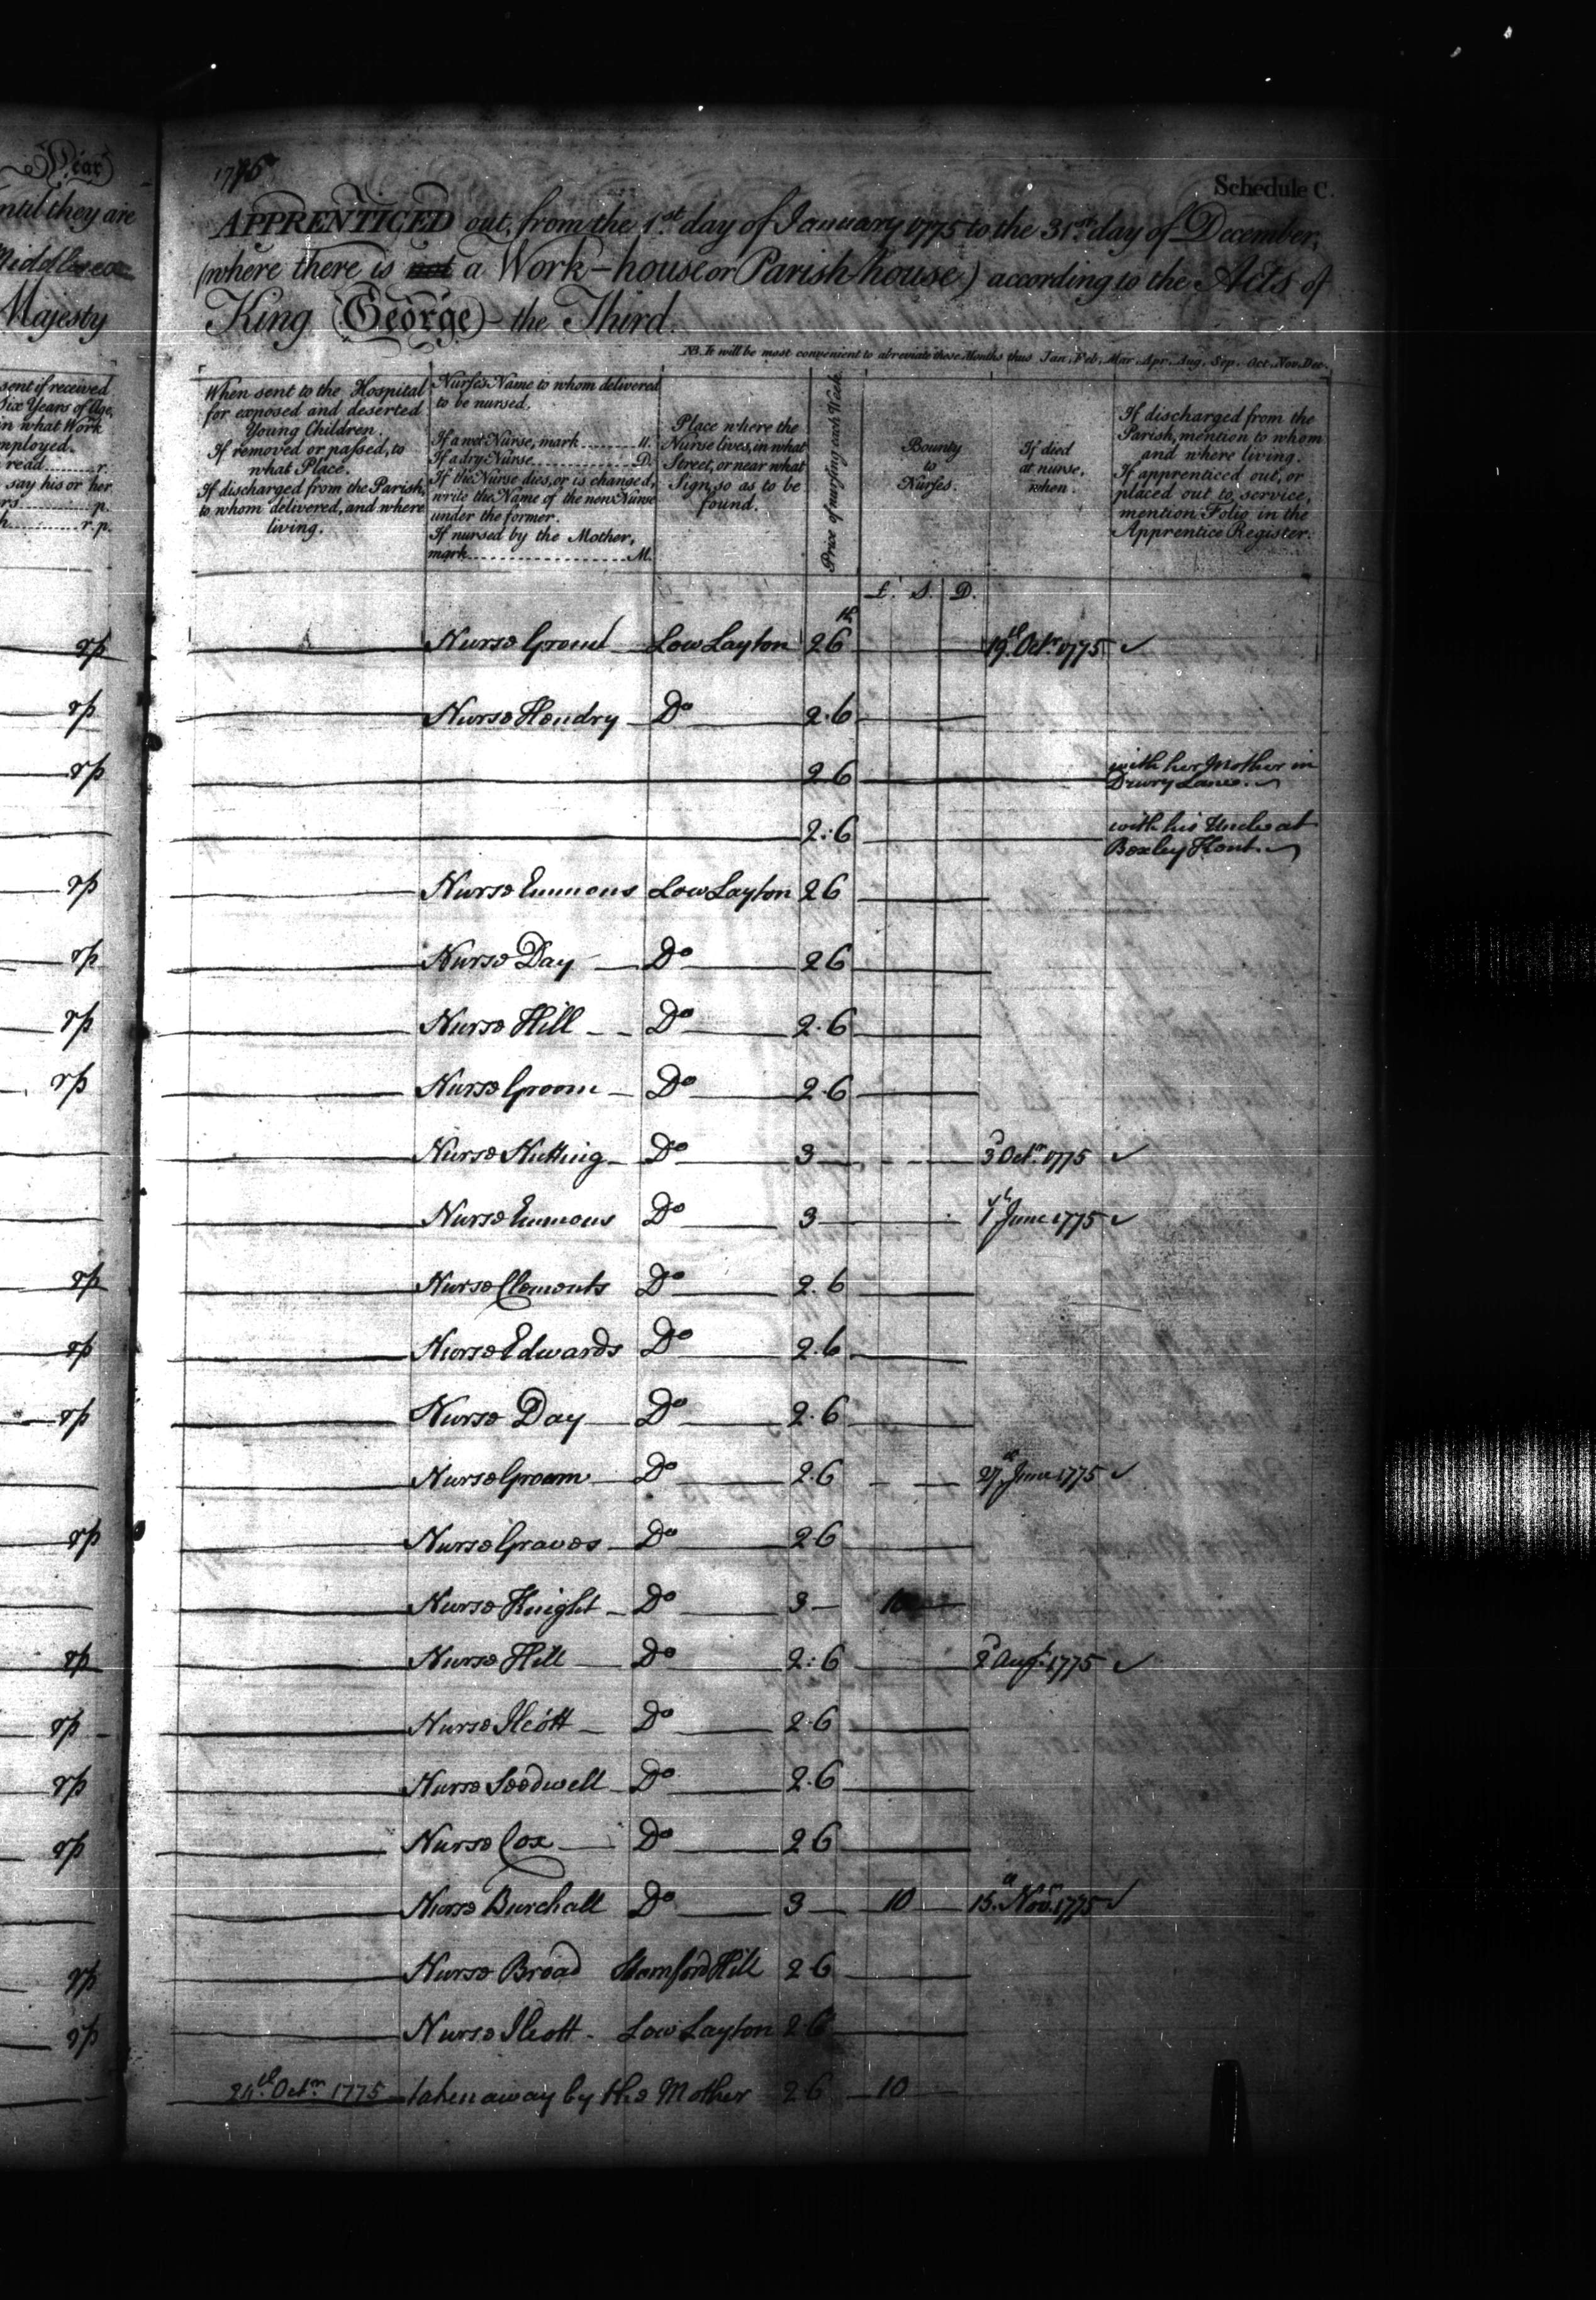 Year
until they are
Middlesex
Majesty
sent if received
Six Years of Age,
in what Work
employed.
read.......r.
say his or her
rs..........p.
h.........r.p.
Schedule C.
APPRENTICED out, from the 1.st day of January 1775 to the 31st day of December,
(where there is not a Work-house or Parish-house) according to the Acts of
King George the Third.
NB. It will be most convenient to abreviate these Months thus Jan. Feb. Mar. Apr. Aug. Sep. Oct. Nov. Dec.
When sent to the Hospital
for exposed and deserted
Young Children.
If removed or passed, to
what Place.
If discharged from the Parish,
to whom delivered, and where
living.
Nurse's Name to whom delivered
to be nursed.
If a wet Nurse, mark..........u.
If a dry Nurse..................D.
If the Nurse dies, or is changed,
write the Name of the new Nurse
under the former.
If nursed by the Mother,
mark.........................M.
Place where the
Nurse lives, in what
Street, or near what
Sign, so as to be
found.
Price of nursing each Week.
Bounty
to
Nurses.
If died
at nurse,
when.
If discharged from the
Parish, mention to whom
and where living.
If apprenticed out, or
placed out to service,
mention Folio in the
Apprentice Register.
£. S. D.
rp Nurse Low Layton 2 6 19th Octr. 1775 ✓
rp Nurse Hendry Do 2.6
rp 2 6 with her Mother in
Drury Lane.
2:6 with his Uncle at
Boxley Kent.
rp Nurse Emmons Low Layton 2 6
rp Nurse Day Do 2 6
rp Nurse Hill Do 2.6
rp Nurse Groom Do 2.6
Nurse Nutting Do 3 3d Octr. 1775 ✓
Nurse Emmons Do 3 June 1775 ✓
rp Nurse Clements Do 2.6
rp Nurse Edwards Do 2.6
rp Nurse Day Do 2.6
Nurse Groom Do 2.6 27th June 1775 ✓
rp Nurse Graves Do 2.6
Nurse Knight Do 3 10
rp Nurse Hill Do 2:6 2d Augt. 1775 ✓
rp Nurse Ilcott Do 2.6
rp Nurse Seedwell Do 2.6
rp Nurse Cox Do 2 6
Nurse Burchall Do 3 10 15th Novr. 1775 ✓
rp Nurse Broad Stamford Hill 2 6
rp Nurse Ilcott Low Layton 2 6
24th Octr. 1775 taken away by the Mother 2 6 10